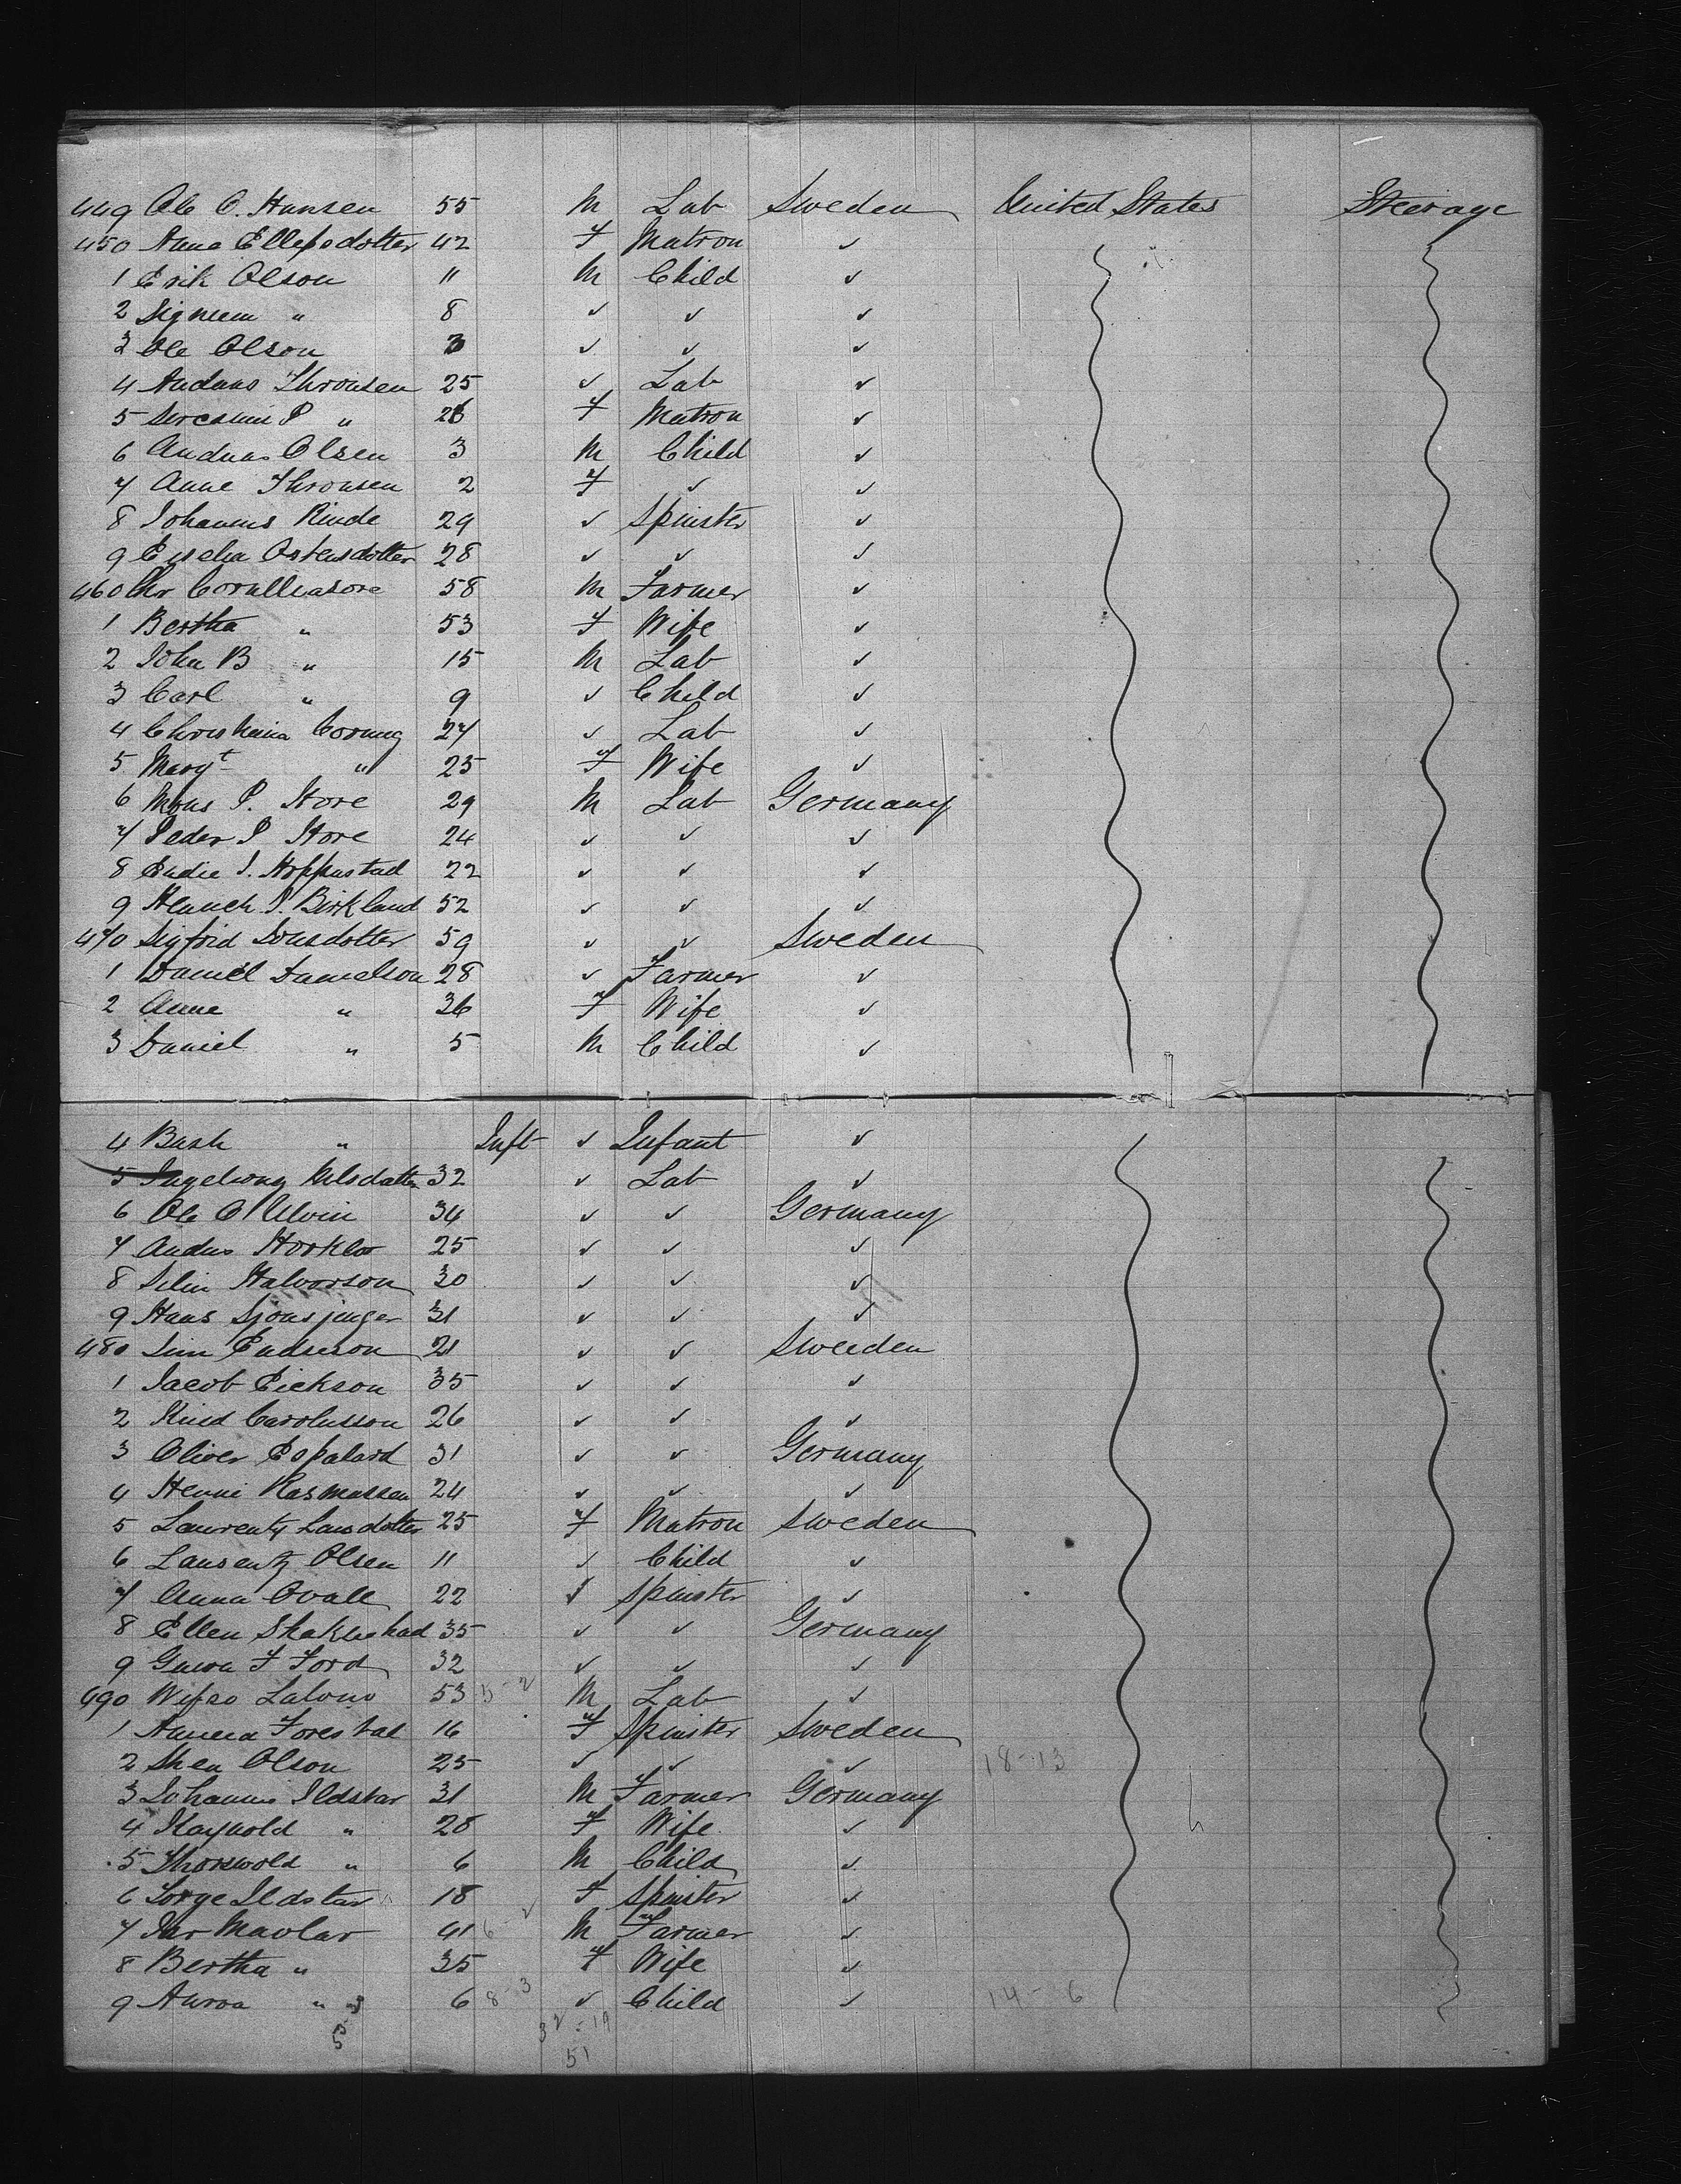 449 Ole O. Hansen 55 M Lab Sweden United States Steerage
450 Anna Ellefsdotter 42 F Matron ✓
1 Erik Olson 11 M Child ✓
2 " 8 ✓ ✓ ✓
3 Ole Olson 3 ✓ ✓ ✓
4 Andans Thronsen 25 ✓ Lab ✓
5 P " 26 F Matron ✓
6 Andreas Olsen 3 M Child ✓
7 Anne Thronsen 2 F ✓ ✓
8 Johannes Rinde 29 ✓ Spinster ✓
9 Ostensdotter 28 ✓ ✓ ✓
460 Chr 58 M Farmer ✓
1 Bertha " 53 F Wife ✓
2 John B " 15 M Lab ✓
3 Carl " 9 ✓ Child ✓
4 Corning 27 ✓ Lab ✓
5 Margt " 25 F Wife ✓
6 Mons P. Hore 29 M Lab Germany
7 Peder P Hore 24 ✓ ✓ ✓
8 Endie I. Hoppestad 22 ✓ ✓ ✓
9 I. Birkland 52 ✓ ✓ ✓
470 Sigfrid Jonsdotter 59 ✓ ✓ Sweden
1 Daniel Danielson 28 ✓ Farmer ✓
2 Anne " 36 F Wife ✓
3 Daniel " 5 M Child ✓
4 " Inft ✓ Infant ✓
5 Nilsdatter 32 ✓ Lab ✓
6 Ole O Alvin 34 ✓ ✓ Germany
7 Andus 25 ✓ ✓ ✓
8 Halvorson 30 ✓ ✓ ✓
9 Hans Sjonsjenger 31 ✓ ✓ ✓
480 21 ✓ ✓ Sweden
1 Jacob Eickson 35 ✓ ✓ ✓
2 Carolusson 26 ✓ ✓ ✓
3 Oliver Espalard 31 ✓ ✓ Germany
4 Henni Rasmussen 24 ✓ ✓ ✓
5 Laurentz Larsdotter 25 F Matron Sweden
6 Laurentz Olsen 11 ✓ Child ✓
7 Anna Ovall 22 ✓ Spinster ✓
8 Ellen 35 ✓ ✓ Germany
9 F Ford 32 ✓ ✓ ✓
490 53 M Lab ✓
1 Forestal 16 F Spinster Sweden
2 Olson 25 ✓ ✓ ✓ 18-13
3 Johannes Ildstar 31 M Farmer Germany
4 " 28 F Wife ✓
5 Thorswold " 6 M Child ✓
6 Torge Ildstar 18 F Spinster ✓
7 Maolar 41 6-2 M Farmer ✓
8 Bertha " 35 F Wife ✓
9 " 6 8-3 ✓ Child ✓ 14-6
32-19
51